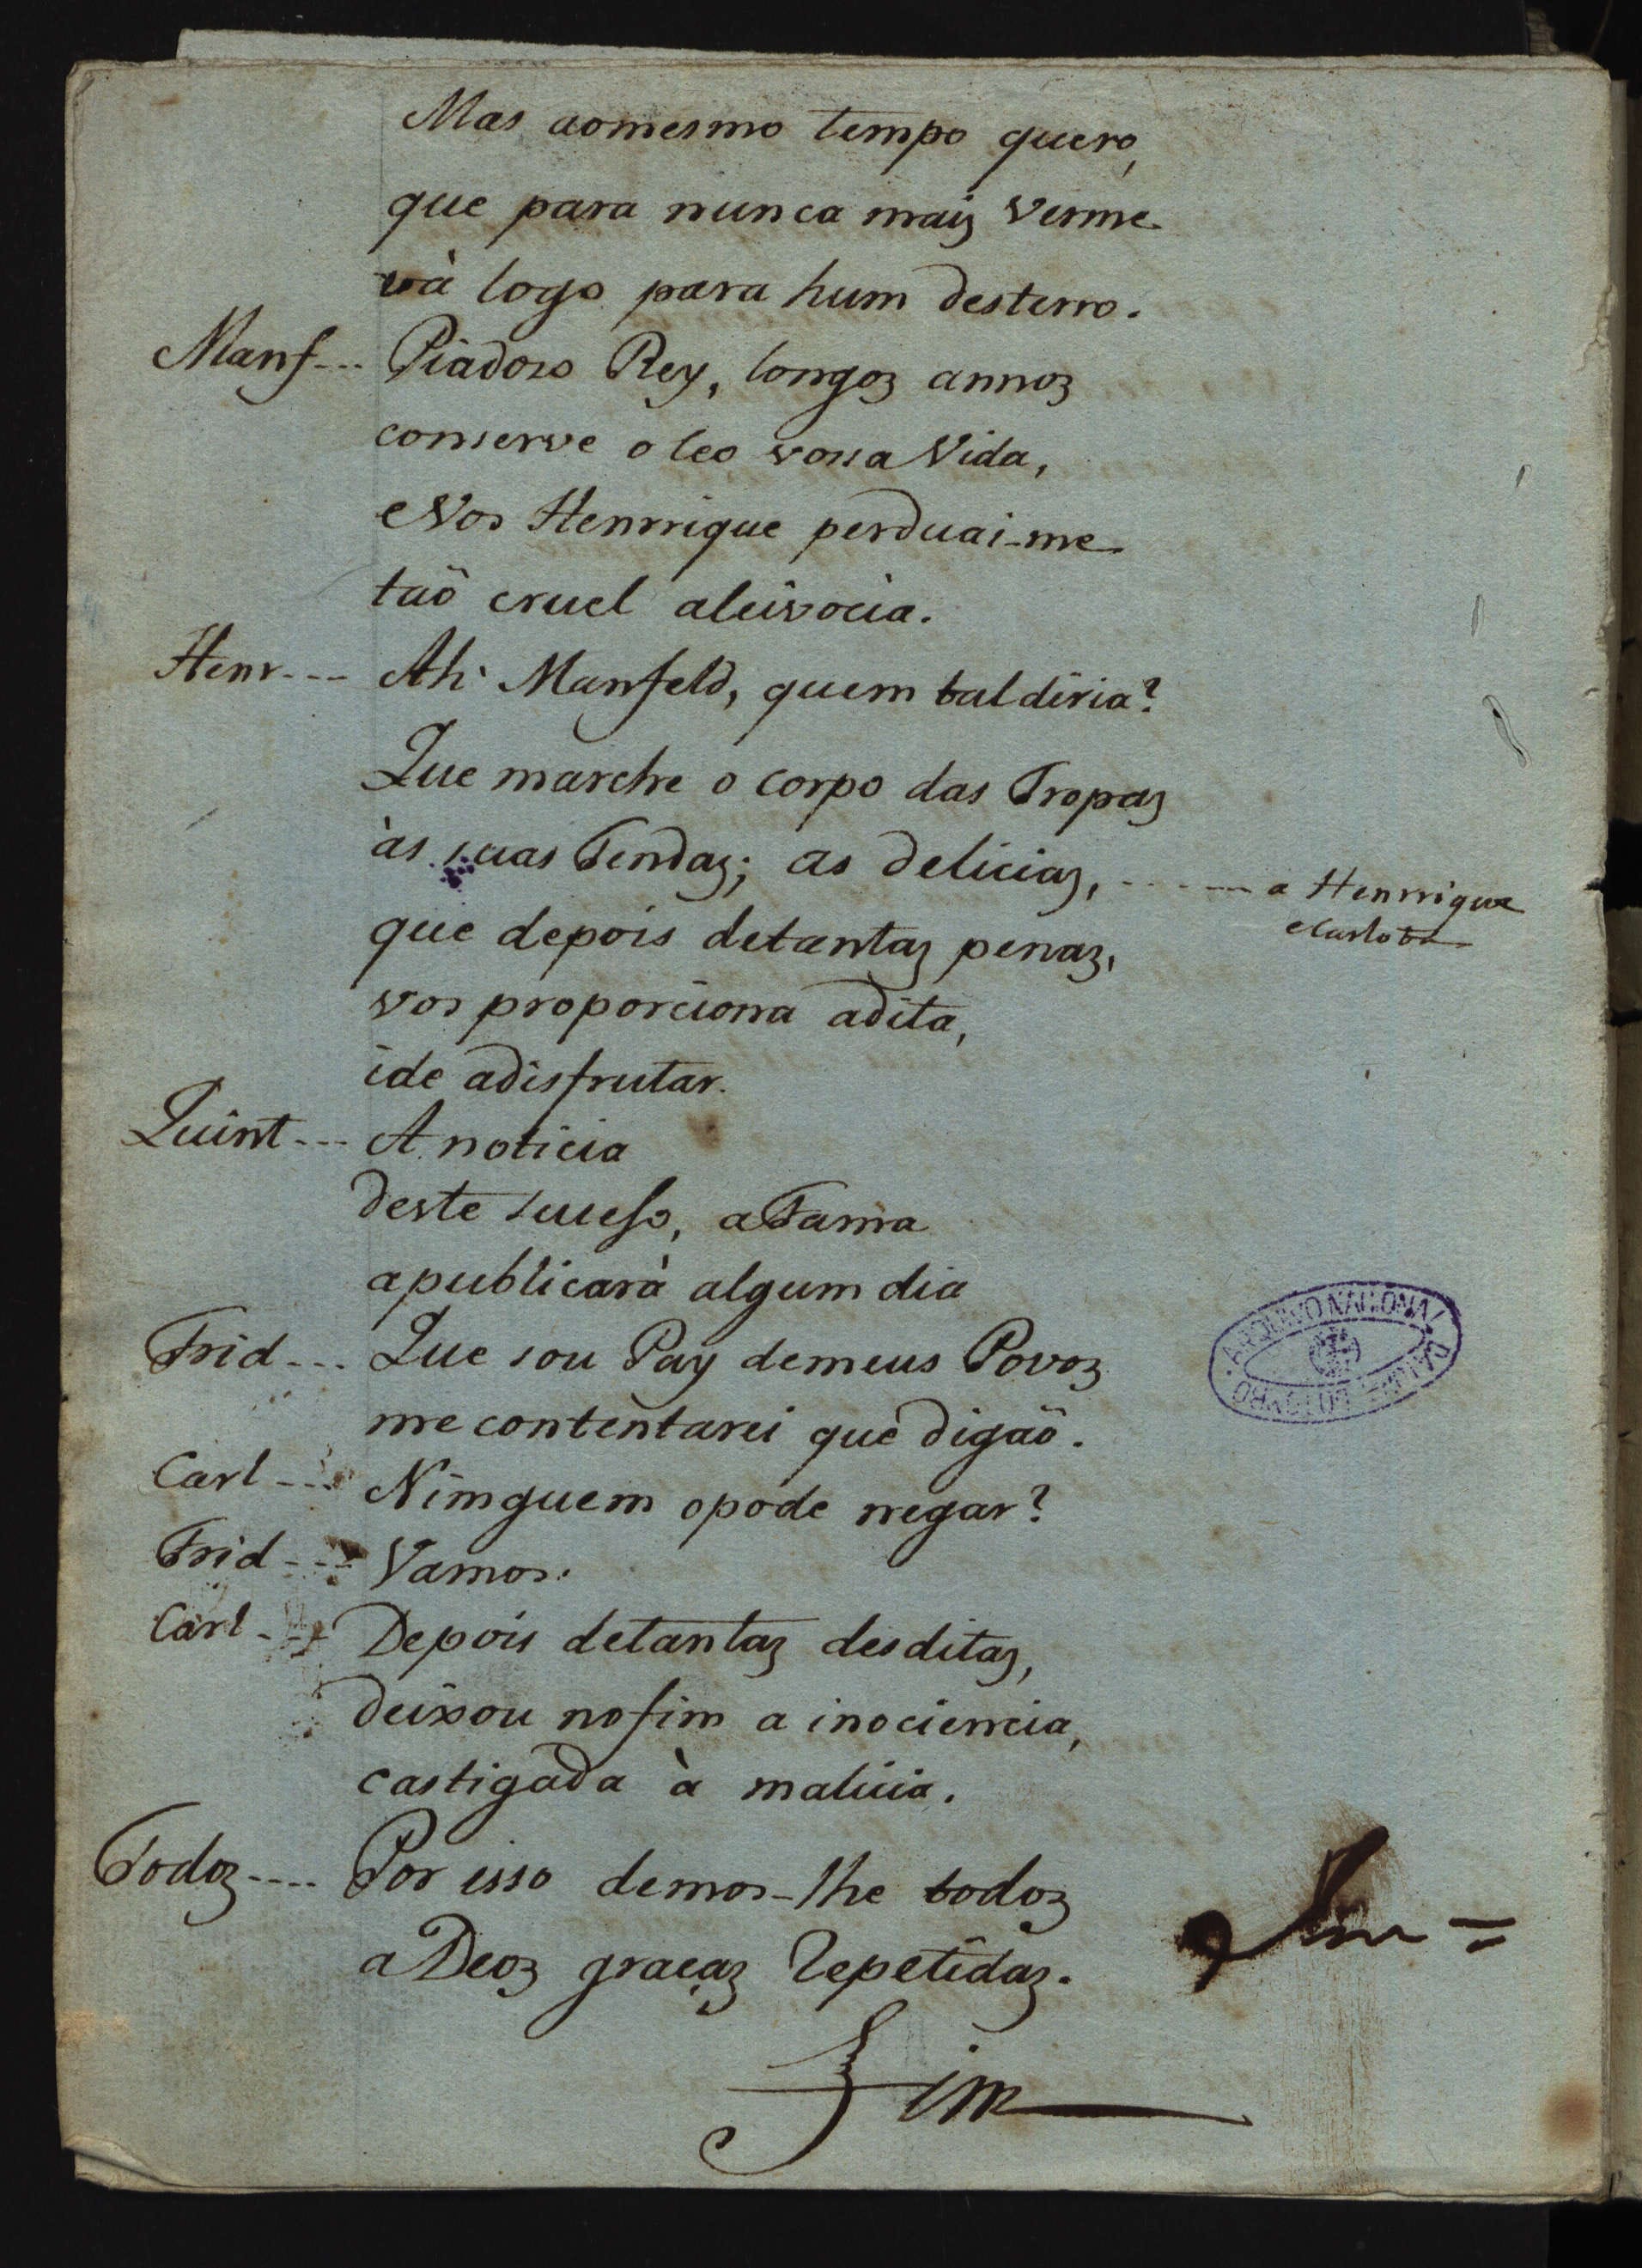 Mas aomesmo tempo quero,
que para nunca mais verme
và logo para hum desterro.
Manf--- Piadozo Rey, longos annos
conserve o Ceo vossa Vida,
eVos Henrrique perduai-me
taõ cruel aleivocia.
Henr--- Ah! Manfeld, quem tal diria?
Que marche o corpo das Tropas
às suas Tendas; as delicias, ------ a Henrrique
eCarlota
que depois detantas penas,
vos proporciona adita,
ide adisfrutar.
Quint--- A noticia
deste suceso, aFama
apublicarà algum dia
Frid--- Que sou Pay demeus Povos
me contentarei que digaõ.
Carl--- Nimguem opode negar?
Frid--- Vamos.
Carl--- Depois detantas desditas,
deixou nofim a inociencia,
castigada à malicia.
Todos---- Por isso demos-lhe todos
aDeos graças Repetidas.
Fim
ARQUIVO NACIONAL DA TORRE DO TOMBO